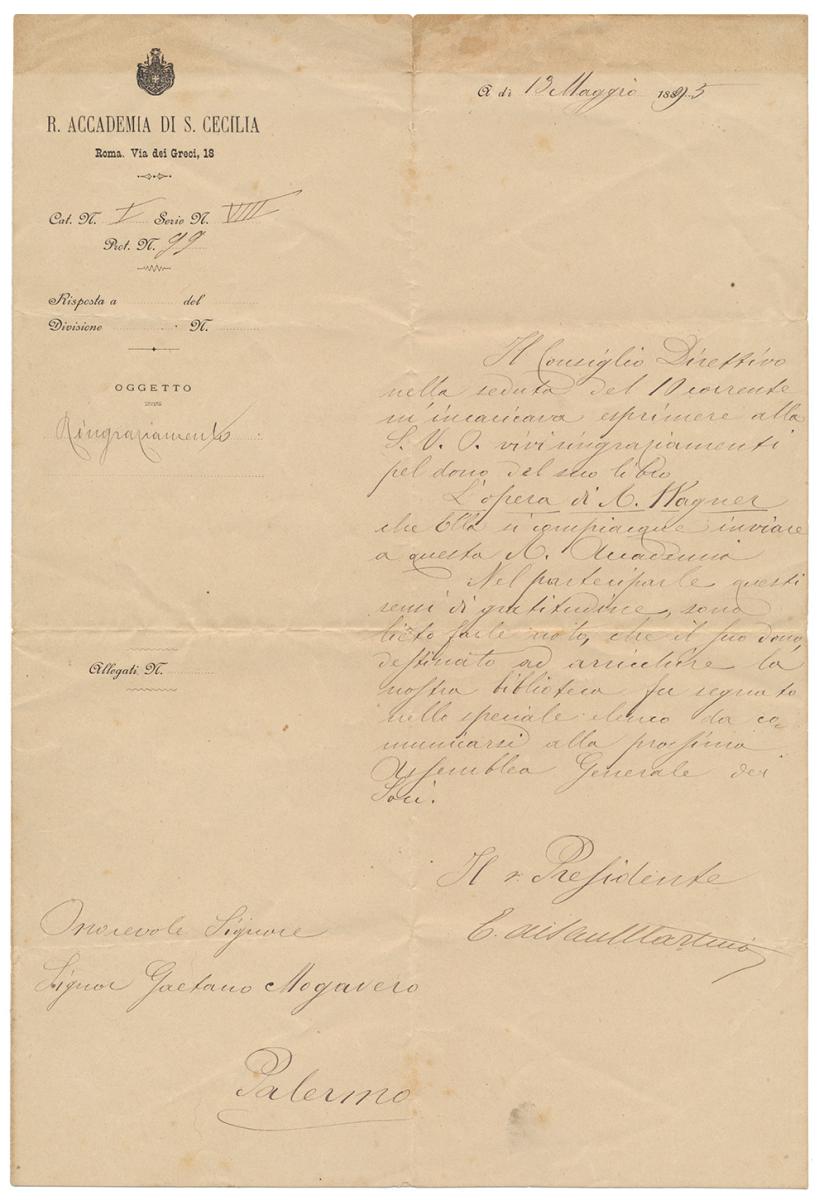 R. ACCADEMIA DI S. CECILIA
Roma. Via dei Greci, 18
Cat. N. V Serie N. VIII
Prot. N. 99
Risposta a del
Divisione N.
OGGETTO
Ringraziamento
Allegati N.
A dì 13 Maggio 1895
Il Consiglio Direttivo
nella seduta del 10 corrente
m'incaricava esprimere alla
S. V. O. vivi ringraziamenti
pel dono del suo libro
L'opera di R. Wagner
che Ella si compiacque inviare
a questa R. Accademia
Nel parteciparle questi
sensi di gratitudine, sono
lieto farle noto, che il suo dono,
destinato ad arricchire la
nostra biblioteca fu segnato
nello speciale elenco da co-
municarsi alla prossima
Assemblea Generale dei
Soci.
Il v. Presidente
E. di San Martino
Onorevole Signore
Signor Gaetano Mogavero
Palermo